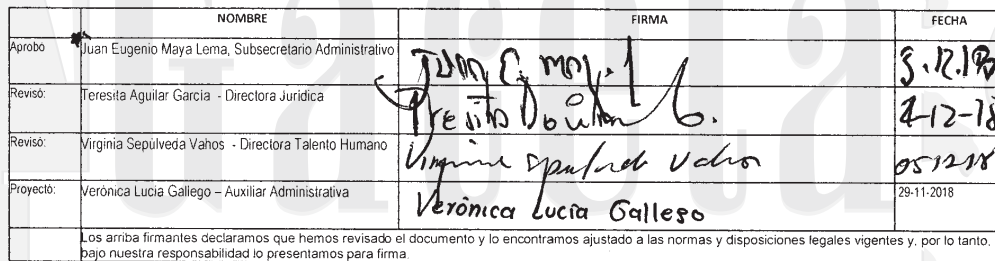 NOMBRE FIRMA FECHA
Aprobó Juan Eugenio Maya Lema, Subsecretario Administrativo
Revisó: Teresita Aguilar García - Directora Jurídica 4-12-18
Revisó: Virginia Sepúlveda Vahos - Directora Talento Humano Virginia Sepulveda Vahos 051218
Proyectó: Verónica Lucía Gallego – Auxiliar Administrativa Verónica Lucía Gallego 29-11-2018
Los arriba firmantes declaramos que hemos revisado el documento y lo encontramos ajustado a las normas y disposiciones legales vigentes y, por lo tanto,
bajo nuestra responsabilidad lo presentamos para firma.